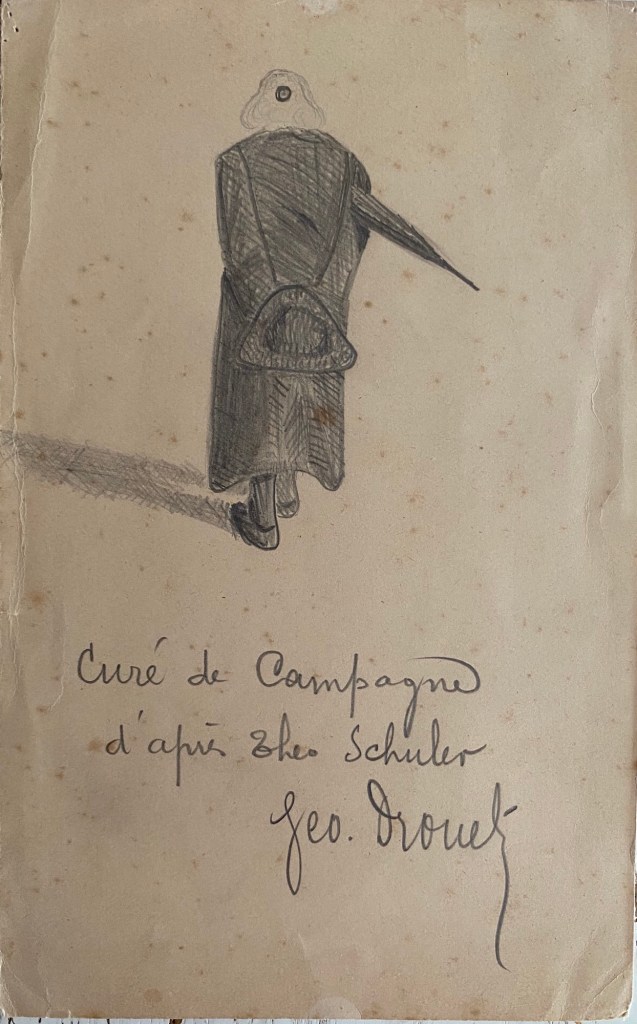 Curé de Campagne
d'après Theo Schuler
Geo. Drouet